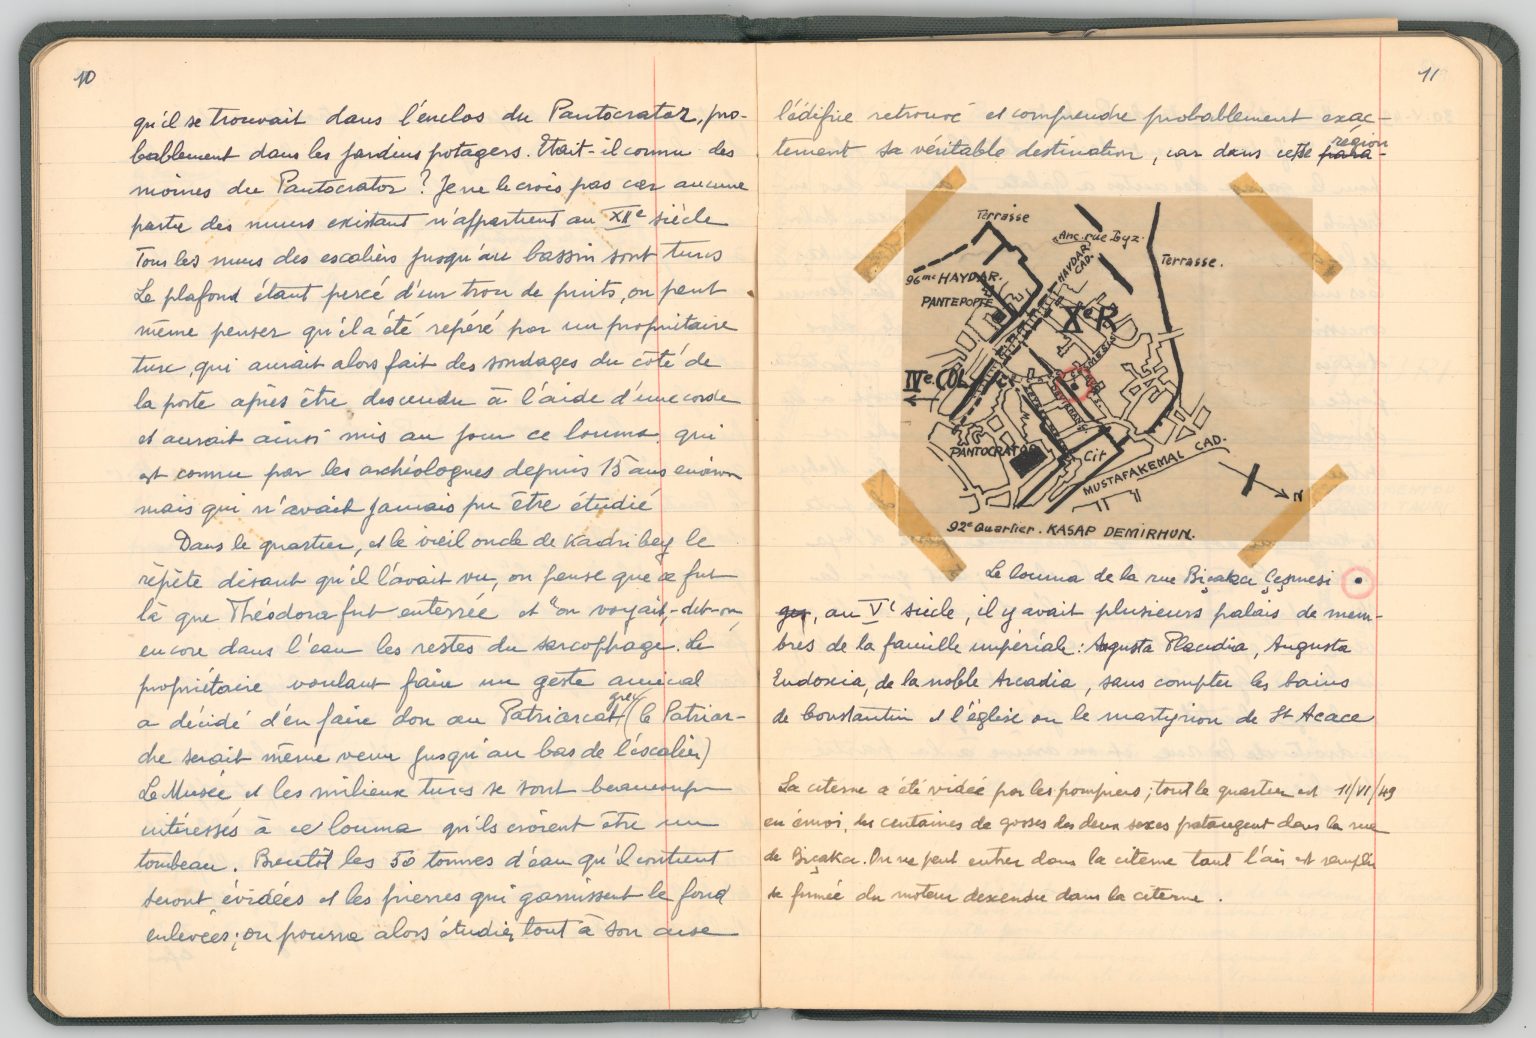 10
qu'il se trouvait dans l'enclos du Pantocrator, pro-
bablement dans les jardins potagers. Etait-il connu des
moines du Pantocrator? Je ne le crois pas car aucune
partie des murs existant n'appartient au XIIe siècle
Tous les murs des escaliers jusqu'au bassin sont turcs
Le plafond étant percé d'un trou de puits, on peut
même penser qu'il a été repéré par un propriétaire
turc, qui aurait alors fait des sondages du côté de
la porte après être descendu à l'aide d'une corde
et aurait ainsi mis au jour ce louma, qui
est connu par les archéologues depuis 15 ans environ
mais qui n'avait jamais pu être étudié
Dans le quartier, et le vieil oncle de Kadri bey le
répète disant qu'il l'avait vu, on pense que ce fut
là que Théodora fut enterrée et "on voyait,-dit-on,
encore dans l'eau les restes du sarcophage. Le
propriétaire voulant faire un geste amical
a décidé d'en faire don au Patriarcat grec (le Patriar-
che serait même venu jusqu'au bas de l'escalier)
Le Musée et les milieux turcs se sont beaucoup
intéressés à ce louma qu'ils croient être un
tombeau. Bientôt les 50 tonnes d'eau qu'il contient
seront évidées et les pierres qui garnissent le fond
enlevées; on pourra alors étudier tout à son aise
11
l'édifice retrouvé et comprendre probablement exac-
tement sa véritable destination, car dans cette région
Terrasse
Anc. rue Ioyz.
HAYDAR CAD.
Terrasse.
96me HAYDAR.
PANTEPOPTE
Xe R
IVe COL.
PANTOCRATOR
Cit
MUSTAFAKEMAL CAD.
N
92e Quartier. KASAP DEMIRHUN.
Le louma de la rue Bıçakcı Çeşmesi
, au Ve siècle, il y avait plusieurs palais de mem-
bres de la famille impériale: Augusta Placidia, Augusta
Eudoxia, de la noble Arcadia, sans compter les bains
de Constantin et l'église ou le martyrion de St Acace
La citerne a été vidée par les pompiers; tout le quartier est 11/VI/49
en émoi, des centaines de gosses des deux sexes pataugent dans la rue
de Bıçakcı. On ne peut entrer dans la citerne tant l'air est rempli
de fumée du moteur descendu dans la citerne.